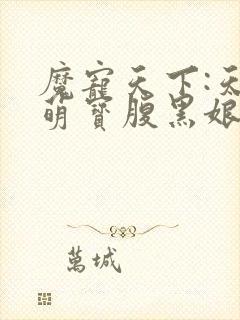 魔寵天下:天
明寶腹黑娘
萬城